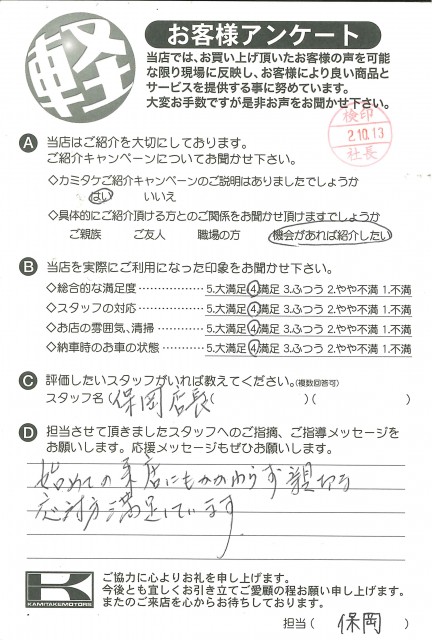 軽
お客様アンケート
当店では、お買い上げ頂いたお客様の声を可能
な限り現場に反映し、お客様により良い商品と
サービスを提供する事に努めています。
大変お手数ですが是非お声をお聞かせ下さい。
検印
2.10.13
社長
A 当店はご紹介を大切にしております。
ご紹介キャンペーンについてお聞かせ下さい。
◇カミタケご紹介キャンペーンのご説明はありましたでしょうか
はい いいえ
◇具体的にご紹介頂ける方とのご関係をお聞かせ頂けますでしょうか
ご親族 ご友人 職場の方 機会があれば紹介したい
B 当店を実際にご利用になった印象をお聞かせ下さい。
◇総合的な満足度…………… 5.大満足 4.満足 3.ふつう 2.やや不満 1.不満
◇スタッフの対応…………… 5.大満足 4.満足 3.ふつう 2.やや不満 1.不満
◇お店の雰囲気、清掃……… 5.大満足 4.満足 3.ふつう 2.やや不満 1.不満
◇納車時のお車の状態……… 5.大満足 4.満足 3.ふつう 2.やや不満 1.不満
C 評価したいスタッフがいれば教えてください。(複数回答可)
スタッフ名(保岡店長)( )( )
D 担当させて頂きましたスタッフへのご指摘、ご指導メッセージを
お願いします。応援メッセージもぜひお願いします。
始めての来店にもかかわらず親切な
応対方満足しています
K
KAMITAKEMOTORS
ご協力に心よりお礼を申し上げます。
今後とも宜しくお引き立てご愛顧の程お願い申し上げます。
またのご来店を心からお待ちしております。
担当( 保岡 )